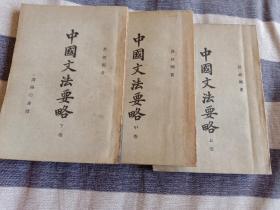 中國文法要略
下卷
呂叔湘著
商務印書館
中國文法要略
中卷
呂叔湘著
中國文法要略
上卷
呂叔湘著